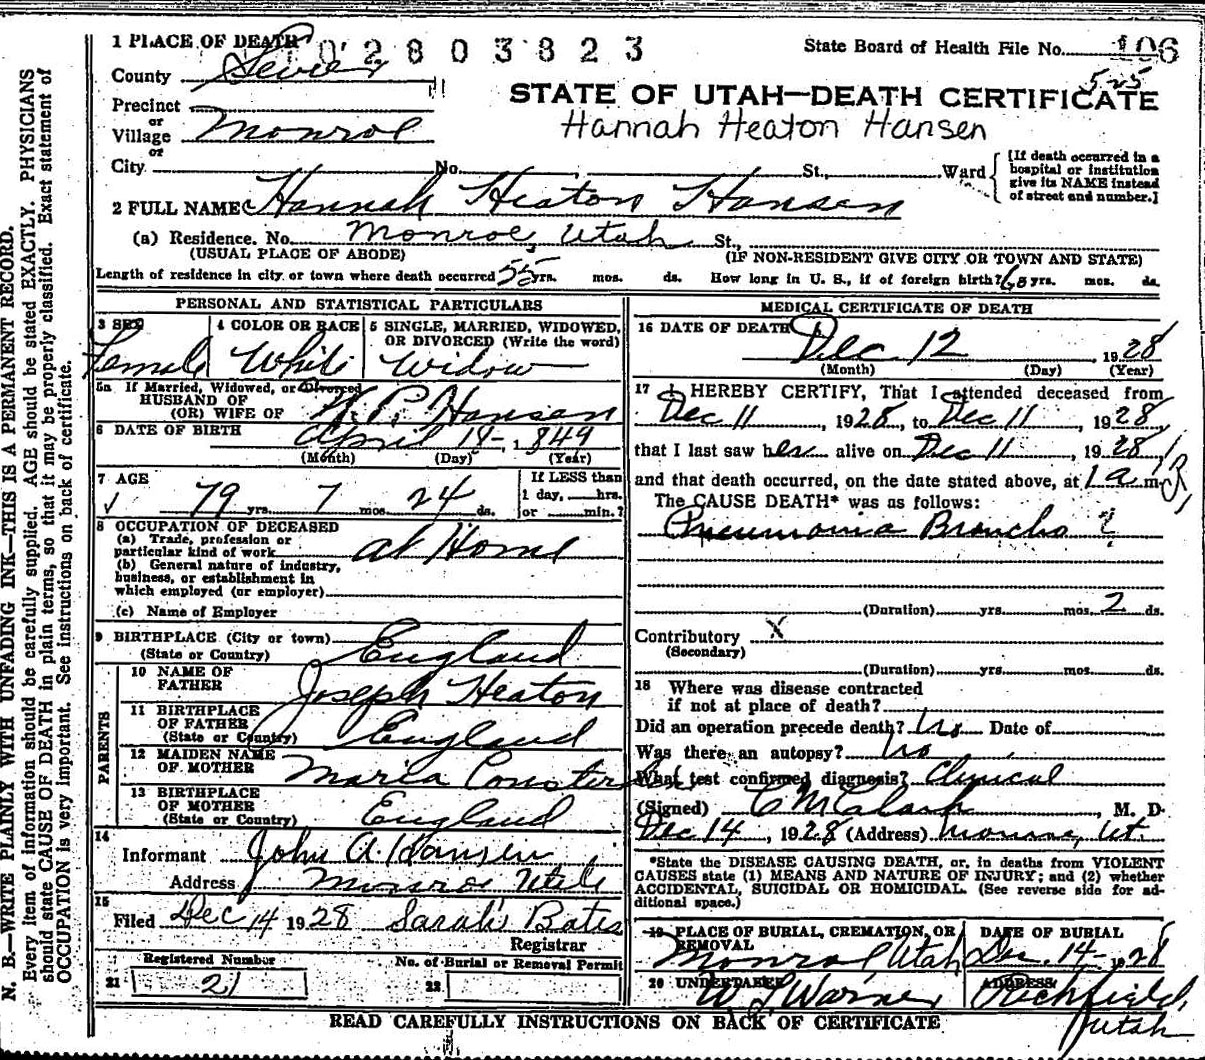 1 PLACE OF DEATH 02803823 State Board of Health File No. 106
County Sevier 525
STATE OF UTAH—DEATH CERTIFICATE
Precinct
or
Village Monroe
Hannah Heaton Hansen
or
City No. St., Ward
[If death occurred in a
hospital or institution
give its NAME instead
of street and number.]
2 FULL NAME Hannah Heaton Hansen
(a) Residence. No. Monroe, Utah St.,
(USUAL PLACE OF ABODE) (IF NON-RESIDENT GIVE CITY OR TOWN AND STATE)
Length of residence in city or town where death occurred 55 yrs. mos. ds. How long in U. S., if of foreign birth? 60 yrs. mos. ds.
PERSONAL AND STATISTICAL PARTICULARS
3 SEX 4 COLOR OR RACE 5 SINGLE, MARRIED, WIDOWED,
OR DIVORCED (Write the word)
Female White Widow
5a If Married, Widowed, or Divorced
HUSBAND OF
(OR) WIFE OF P. Hansen
6 DATE OF BIRTH April 18-, 1849
(Month) (Day) (Year)
7 AGE If LESS than
79 yrs. 7 mos. 24 ds. 1 day, hrs.
or min.?
8 OCCUPATION OF DECEASED
(a) Trade, profession or
particular kind of work at Home
(b) General nature of industry,
business, or establishment in
which employed (or employer)
(c) Name of Employer
9 BIRTHPLACE (City or town)
(State or Country) England
PARENTS
10 NAME OF
FATHER Joseph Heaton
11 BIRTHPLACE
OF FATHER
(State or Country) England
12 MAIDEN NAME
OF MOTHER Maria
13 BIRTHPLACE
OF MOTHER
(State or Country) England
14
Informant John A. Hansen
Address Monroe Utah
15
Filed Dec 14 1928 Sarah Bates
Registrar
Registered Number No. of Burial or Removal Permit
21 21 22
MEDICAL CERTIFICATE OF DEATH
16 DATE OF DEATH
Dec 12, 1928
(Month) (Day) (Year)
17 I HEREBY CERTIFY, That I attended deceased from
Dec 11, 1928, to Dec 11, 1928,
that I last saw her alive on Dec 11, 1928,
and that death occurred, on the date stated above, at 1 a m.
The CAUSE DEATH* was as follows:
Pneumonia Broncho ?
(Duration) yrs. mos. 2 ds.
Contributory X
(Secondary)
(Duration) yrs. mos. ds.
18 Where was disease contracted
if not at place of death?
Did an operation precede death? No Date of
Was there an autopsy? No
What test confirmed diagnosis? Clinical
(Signed) M. D.
Dec 14, 1928 (Address) Monroe, Ut.
*State the DISEASE CAUSING DEATH, or, in deaths from VIOLENT
CAUSES state (1) MEANS AND NATURE OF INJURY; and (2) whether
ACCIDENTAL, SUICIDAL OR HOMICIDAL. (See reverse side for ad-
ditional space.)
19 PLACE OF BURIAL, CREMATION, OR
REMOVAL
Monroe Utah
DATE OF BURIAL
Dec. 14- 1928
20 UNDERTAKER
W Warner
ADDRESS
Richfield,
Utah
READ CAREFULLY INSTRUCTIONS ON BACK OF CERTIFICATE
N. B.—WRITE PLAINLY WITH UNFADING INK—THIS IS A PERMANENT RECORD.
Every item of information should be carefully supplied. AGE should be stated EXACTLY. PHYSICIANS
should state CAUSE OF DEATH in plain terms, so that it may be properly classified. Exact statement of
OCCUPATION is very important. See instructions on back of certificate.